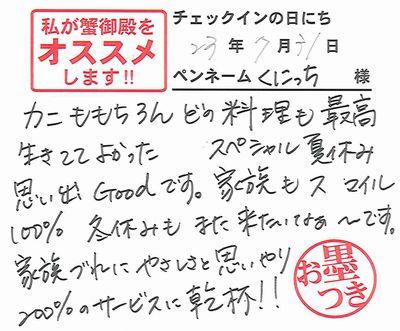 私が蟹御殿を
オススメ
します!!
チェックインの日にち
23年7月31日
ペンネームくにっち 様
カニももちろんどの料理も最高
生きててよかった スペシャル夏休み
思い出Goodです。家族もスマイル
100% 冬休みもまた来たいなぁ〜です。
家族づれにやさしさと思いやり
200%のサービスに乾杯!!
お墨つき